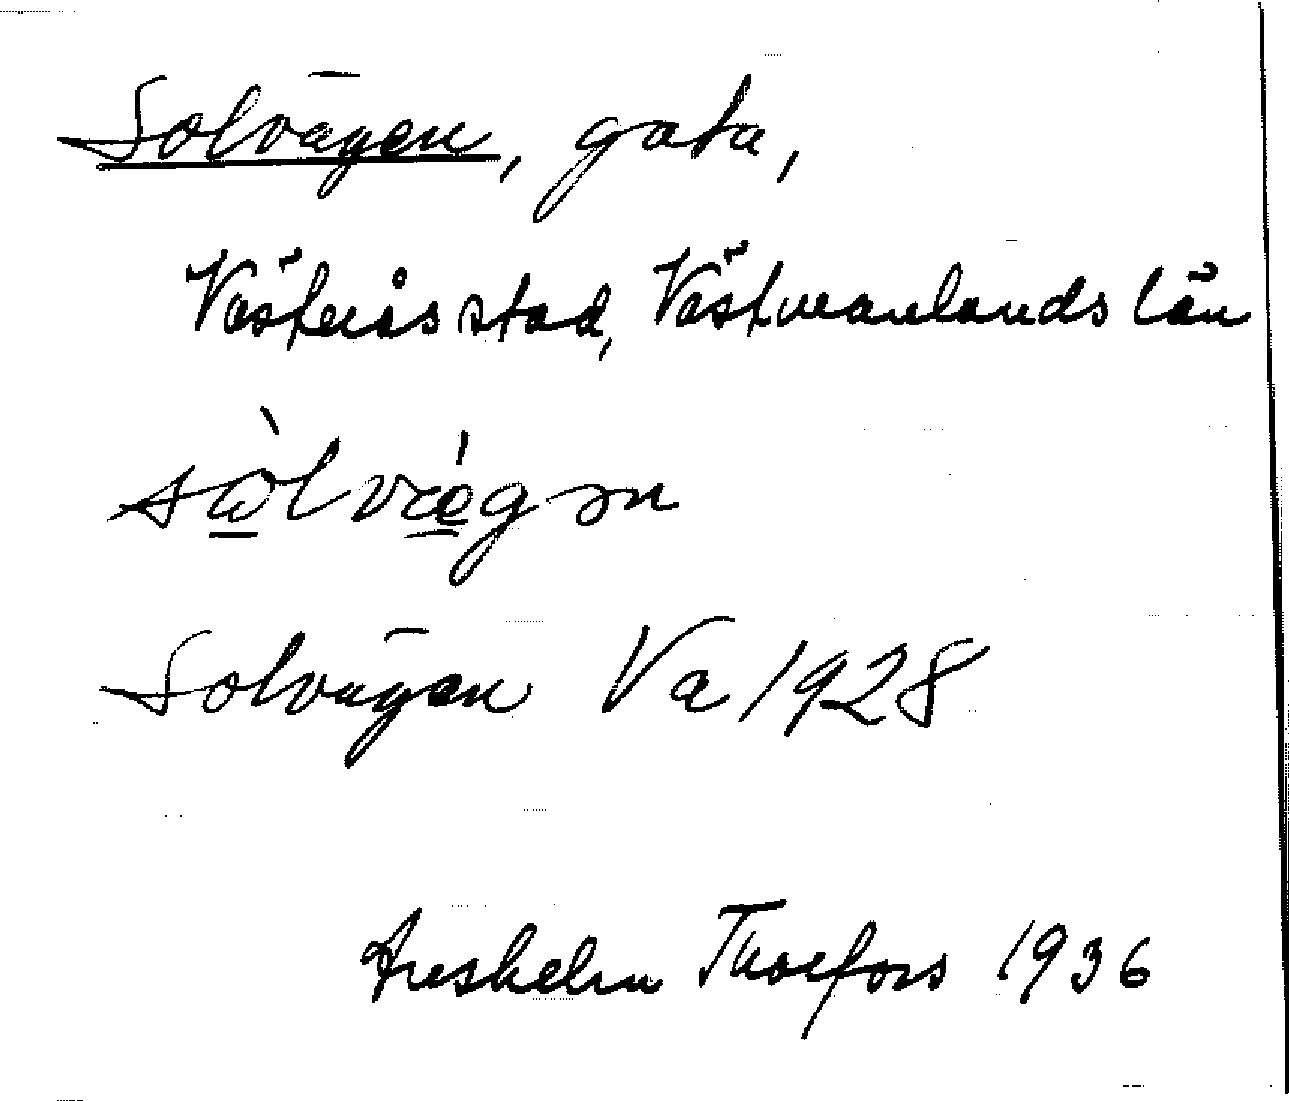 Solvägen, gata,
Västerås stad, Västmanlands län
sò̲lvǽ̲gən
Solvägen Va 1928
Thorfors 1936